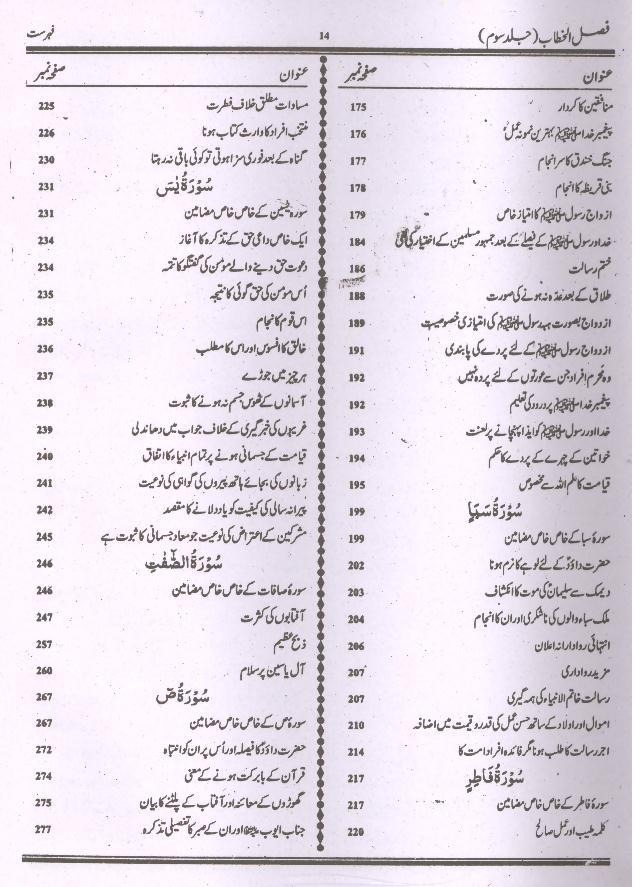 فصل الخطاب (جلد سوم) 14 فہرست
عنوان صفحہ نمبر
منافقین کا کردار 175
پیغمبر خدا ﷺ بہترین نمونہ عمل 176
جنگ خندق کا سرانجام 177
بنی قریظہ کا انجام 178
ازواج رسول ﷺ کا امتیاز خاص 179
خدا و رسول ﷺ کے فیصلے کے بعد جمہور مسلمین کے اختیار کی نفی 184
ختم رسالت 186
طلاق کے بعد عدّہ نہ ہونے کی صورت 188
ازدواج بصورت ہبہ رسول ﷺ کی امتیازی خصوصیت 189
ازواج رسول ﷺ کے لئے پردے کی پابندی 191
وہ محرم افراد جن سے عورتوں کے لئے پردہ نہیں 192
پیغمبر خدا ﷺ پر درود کی تعلیم 192
خدا اور رسول ﷺ کو ایذا پہنچانے پر لعنت 193
خواتین کے چہرے کے پردے کا حکم 194
قیامت کا علم اللہ سے مخصوص 195
سُوْرَۃُ سَبَاٍ 199
سورۂ سبا کے خاص خاص مضامین 199
حضرت داؤدؑ کے لئے لوہے کا نرم ہونا 202
دیمک سے سلیمانؑ کی موت کا انکشاف 203
ملک سباء والوں کی ناشکری اور ان کا انجام 204
انتہائی رودارانہ اعلان 206
مزید رواداری 207
رسالت خاتم الانبیاء کی ہمہ گیری 207
اموال اور اولاد کے ساتھ حسن عمل کی قدر و قیمت میں اضافہ 210
اجر رسالت کا طلب ہونا مگر فائدہ افراد امت کا 214
سُوْرَۃُ فَاطِرٍ 217
سورۂ فاطر کے خاص خاص مضامین 217
کلمہ طیب اور عمل صالح 220
عنوان صفحہ نمبر
مساوات مطلق خلاف فطرت 225
منتخب افراد کا وارث کتاب ہونا 226
گناہ کے بعد فوری سزا ہوتی تو کوئی باقی نہ رہتا 230
سُوْرَۃُ یٰسٓ 231
سورۂ یٰسین کے خاص خاص مضامین 231
ایک خاص داعی حق کے تذکرہ کا آغاز 234
دعوت حق دینے والے مومن کی گفتگو کا تتمہ 234
اُس مومن کی حق گوئی کا نتیجہ 235
اس قوم کا انجام 235
خالق کا افسوس اور اس کا مطلب 236
ہر چیز میں جوڑے 237
آسمانوں کے ٹھوس جسم نہ ہونے کا ثبوت 238
غریبوں کی خبر گیری کے خلاف جواب میں دھاندلی 239
قیامت کے جسمانی ہونے پر تمام انبیاء کا اتفاق 240
زبانوں کی بجائے ہاتھ پیروں کی گواہی کی نوعیت 241
پیرانہ سالی کی کیفیت کو یاد دلانے کا مقصد 242
مشرکین کے اعتراض کی نوعیت جو معاد جسمانی کا ثبوت ہے 245
سُوْرَۃُ الصّٰٓفّٰتِ 246
سورۂ صافات کے خاص خاص مضامین 246
آفتابوں کی کثرت 247
ذبح عظیم 257
آل یاسین پر سلام 260
سُوْرَۃُ صٓ 267
سورۂ ص کے خاص خاص مضامین 267
حضرت داؤدؑ کا فیصلہ اور اُس پر ان کو انتباہ 272
قرآن کے بابرکت ہونے کے معنی 274
گھوڑوں کے معائنہ اور آفتاب کے پلٹنے کا بیان 275
جناب ایوب علیہ السلام اور ان کے صبر کا تفصیلی تذکرہ 277